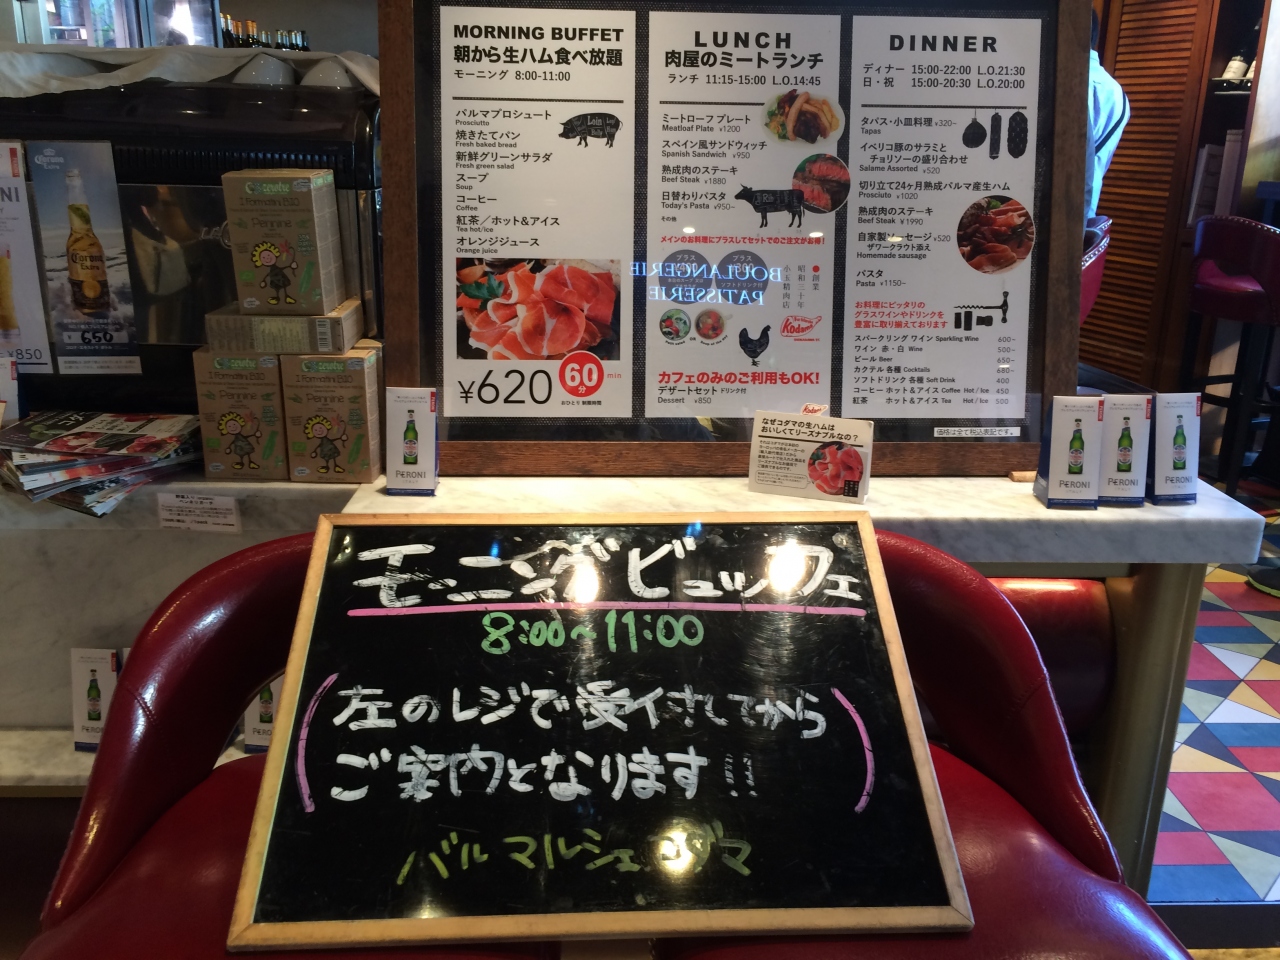 MORNING BUFFET
朝から生ハム食べ放題
モーニング 8:00-11:00
パルマプロシュート
Prosciutto
焼きたてパン
Fresh baked bread
新鮮グリーンサラダ
Fresh green salad
スープ
Soup
コーヒー
Coffee
紅茶／ホット&アイス
Tea hot/ice
オレンジジュース
Orange juice
¥620
60分 min
おひとり 制限時間
LUNCH
肉屋のミートランチ
ランチ 11:15-15:00 L.O.14:45
ミートローフ プレート
Meatloaf Plate ¥1200
スペイン風サンドウィッチ
Spanish Sandwich ¥950
熟成肉のステーキ
Beef Steak ¥1880
日替わりパスタ
Today's Pasta ¥950~
その他
メインのお料理にプラスしてセットでのご注文がお得！
プラス
プラス
BOULANGERIE
PATISSERIE
創業
昭和三十年
小玉精肉店
Kodama
カフェのみのご利用もOK！
デザートセット ドリンク付
Dessert ¥850
DINNER
ディナー 15:00-22:00 L.O.21:30
日・祝 15:00-20:30 L.O.20:00
タパス・小皿料理 ¥320~
Tapas
イベリコ豚のサラミと
チョリソーの盛り合わせ
Salame Assorted ¥520
切り立て24ヶ月熟成パルマ産生ハム
Prosciuto ¥1020
熟成肉のステーキ
Beef Steak ¥1990
自家製ソーセージ ¥520
ザワークラウト添え
Homemade sausage
パスタ
Pasta ¥1150~
お料理にピッタリの
グラスワインやドリンクを
豊富に取り揃えております
スパークリング ワイン Sparkling Wine 600~
ワイン 赤・白 Wine 500~
ビール Beer 650~
カクテル 各種 Cocktails 680~
ソフトドリンク 各種 Soft Drink 400
コーヒー ホット&アイス Coffee Hot / Ice 450
紅茶 ホット&アイス Tea Hot / Ice 500
価格は全て税込表記です。
Corona
Extra
550
¥850
Pennine
Pennine
Pennine
PERONI
Kodama
なぜコダマの生ハムは
おいしくてリーズナブルなの？
PERONI
PERONI
PERONI
PERONI
PERONI
モーニングビュッフェ
8:00~11:00
左のレジで受付してから
ご案内となります!!
バル マルシェ コダマ